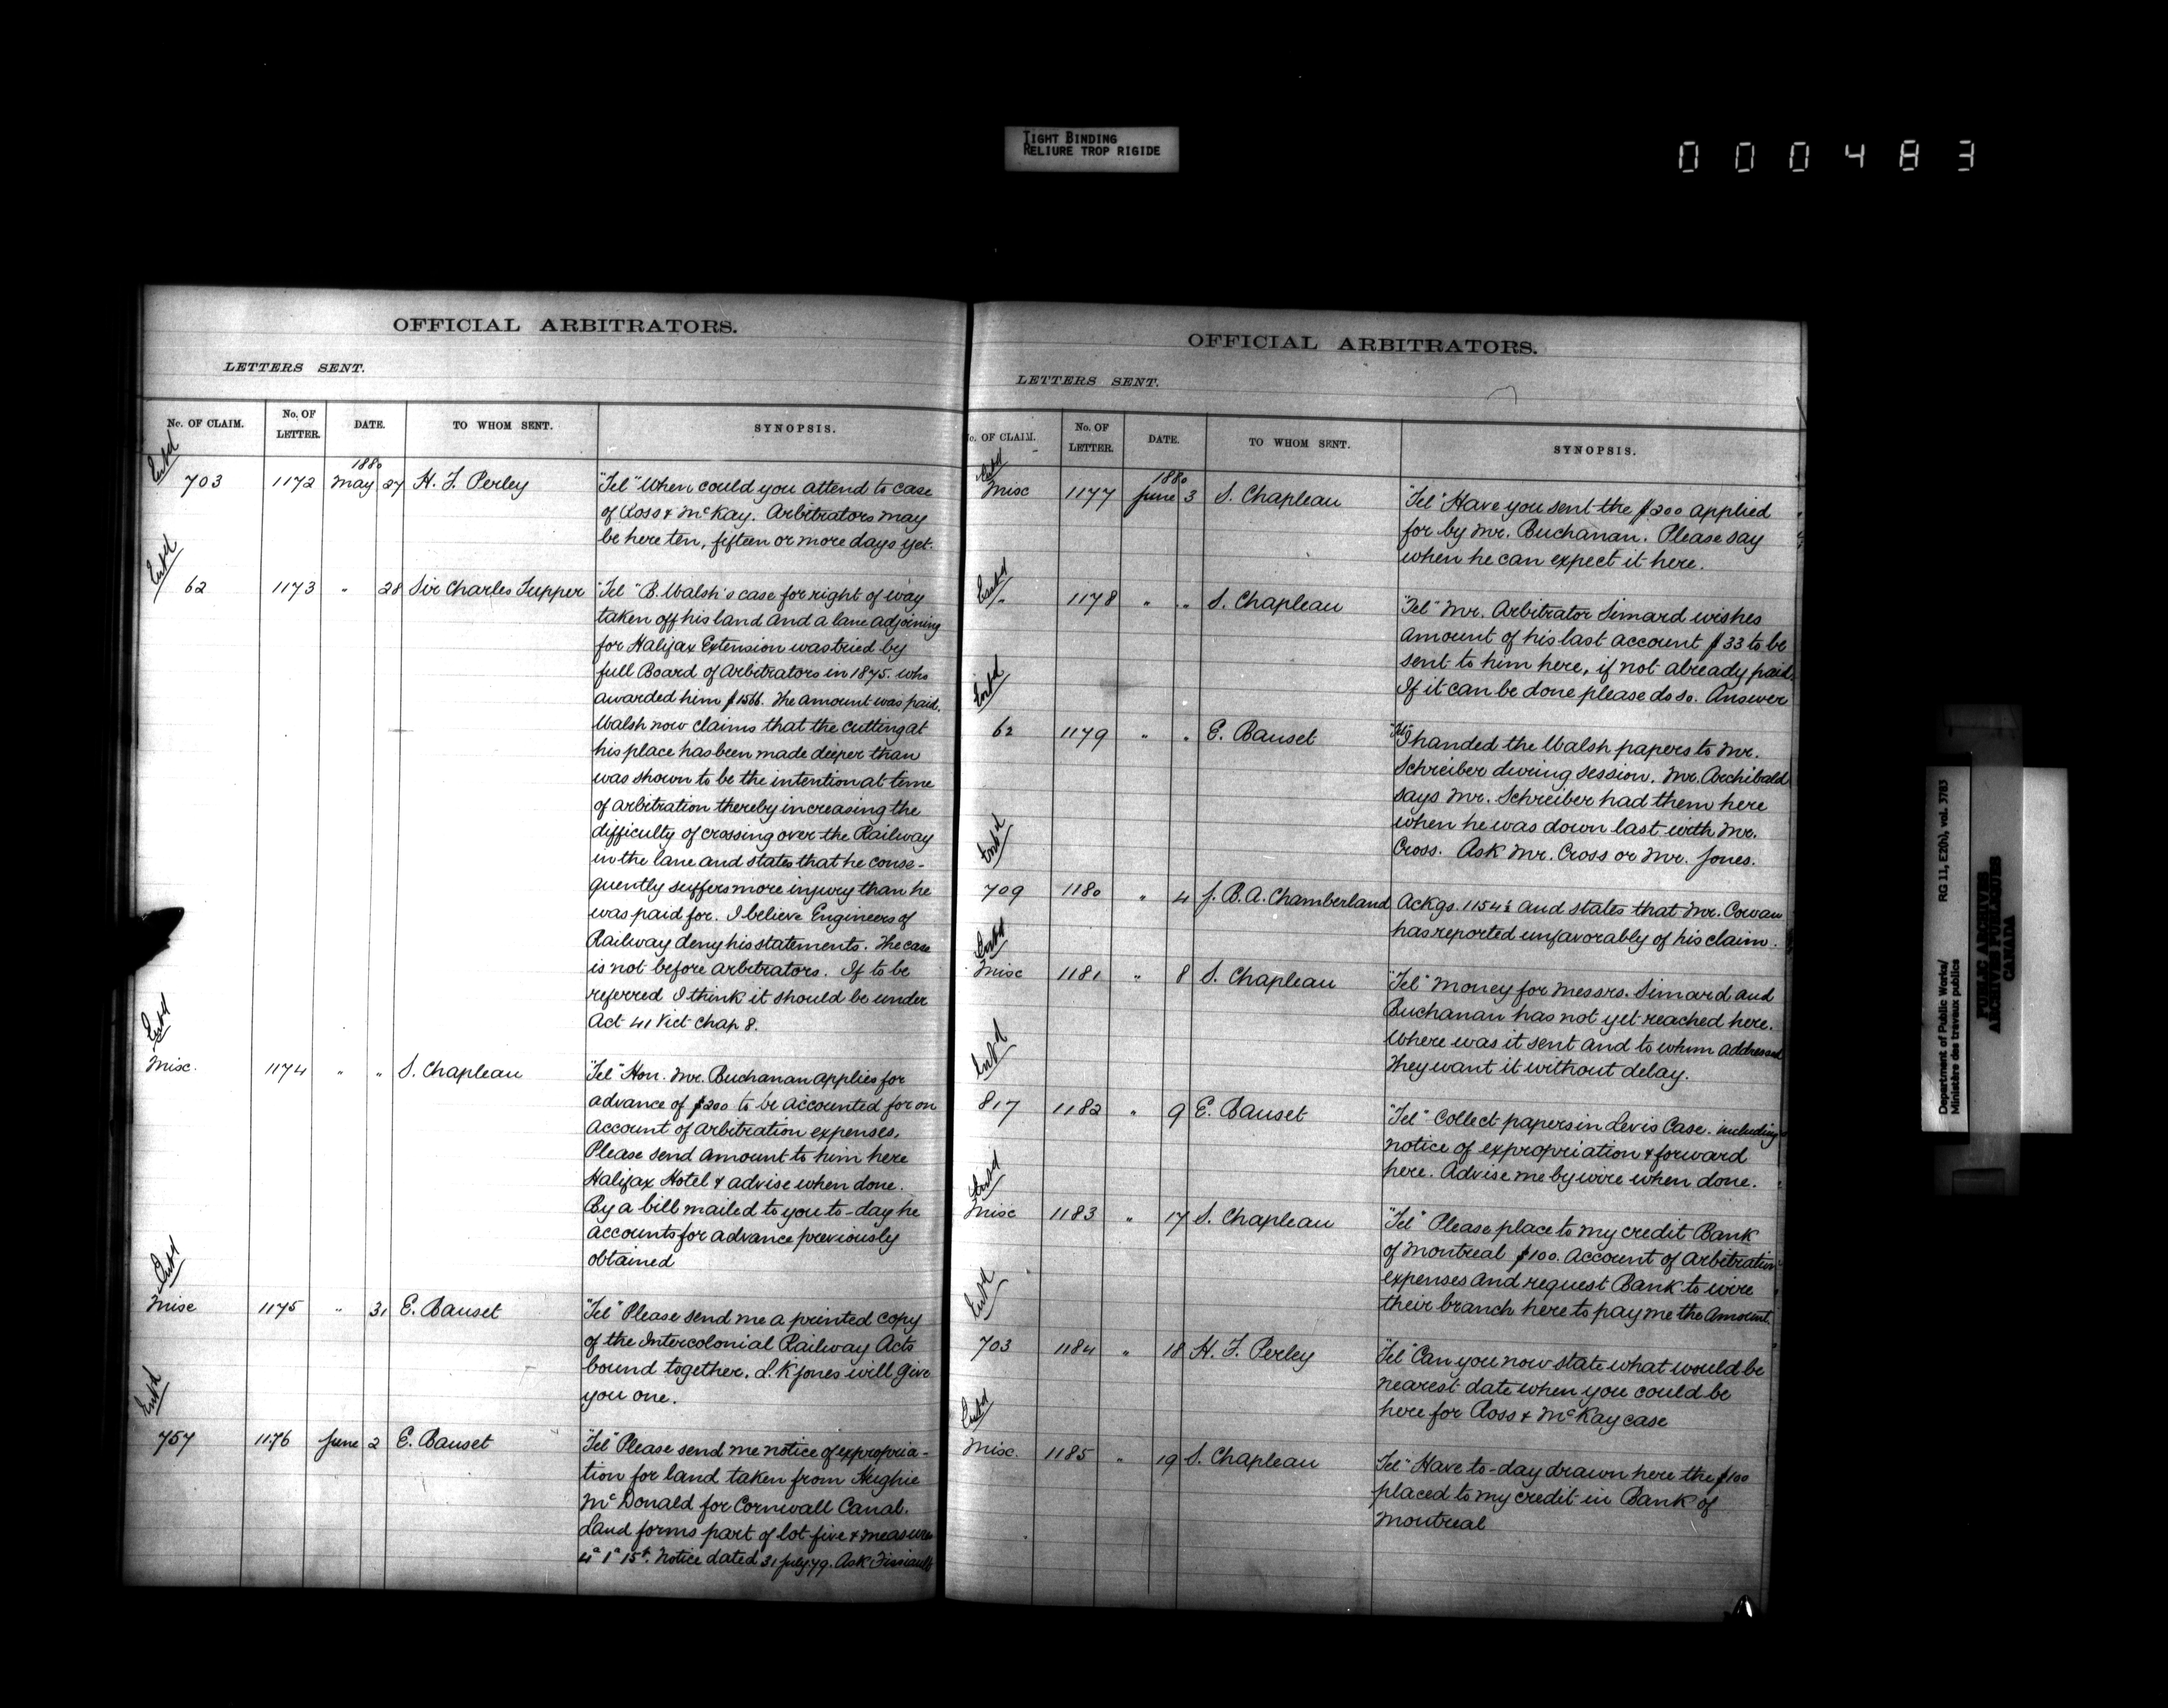 TIGHT BINDING
RELIURE TROP RIGIDE
000483
OFFICIAL ARBITRATORS.
LETTERS SENT.
No. OF CLAIM. No. OF LETTER. DATE. TO WHOM SENT. SYNOPSIS.
Ent'd
1880
703 1172 May 27 H. F. Perley "Tel" When could you attend to case
of Ross & McKay. Arbitrators may
be here ten, fifteen or more days yet.
Ent'd
62 1173 " 28 Sir Charles Tupper "Tel" B. Walsh's case for right of way
taken off his land and a lane adjoining
for Halifax Extension was tried by
full Board of Arbitrators in 1875. who
awarded him $1566. The amount was paid.
Walsh now claims that the cutting at
his place has been made deeper than
was shown to be the intention at time
of arbitration thereby increasing the
difficulty of crossing over the Railway
in the lane and states that he conse-
quently suffers more injury than he
was paid for. I believe Engineers of
Railway deny his statements. The case
is not before arbitrators. If to be
referred I think it should be under
Act 41 Vict Chap 8.
Ent'd
Misc. 1174 " " S. Chapleau "Tel" Hon. Mr. Buchanan applies for
advance of $200 to be accounted for on
account of arbitration expenses.
Please send amount to him here
Halifax Hotel & advise when done.
By a bill mailed to you to-day he
accounts for advance previously
obtained
Ent'd
Misc 1175 " 31 E. Bauset "Tel" Please send me a printed copy
of the Intercolonial Railway Acts
bound together. L. K Jones will give
you one.
Ent'd
757 1176 June 2 E. Bauset "Tel" Please send me notice of expropria-
tion for land taken from Hughie
McDonald for Cornwall Canal.
Land forms part of lot five & measures
4a 1a 15t. Notice dated 31 July 79. Ask
OFFICIAL ARBITRATORS.
LETTERS SENT.
No. OF CLAIM. No. OF LETTER. DATE. TO WHOM SENT. SYNOPSIS.
Ent'd
1880
Misc 1177 June 3 S. Chapleau "Tel" Have you sent the $200 applied
for by Mr. Buchanan. Please say
when he can expect it here.
Ent'd
" 1178 " " S. Chapleau "Tel" Mr. Arbitrator Simard wishes
amount of his last account $33 to be
sent to him here, if not already paid.
If it can be done please do so. Answer
Ent'd
62 1179 " " E. Bauset "Tel" I handed the Walsh papers to Mr.
Schreiber during session. Mr. Archibald
says Mr. Schreiber had them here
when he was down last with Mr.
Cross. Ask Mr. Cross or Mr. Jones.
Ent'd
709 1180 " 4 J. B. A. Chamberland Ackgs. 1154½ and states that Mr. Cowan
has reported unfavorably of his claim.
Ent'd
Misc 1181 " 8 S. Chapleau "Tel" Money for Messrs. Simard and
Buchanan has not yet reached here.
Where was it sent and to whom addressed
They want it without delay.
Ent'd
817 1182 " 9 E. Bauset "Tel" Collect papers in Levis Case. including
notice of expropriation & forward
here. Advise me by wire when done.
Ent'd
Misc 1183 " 17 S. Chapleau "Tel" Please place to my credit Bank
of Montreal $100. Account of Arbitration
expenses and request Bank to wire
their branch here to pay me the amount.
Ent'd
703 1184 " 18 H. F. Perley "Tel" Can you now state what would be
nearest date when you could be
here for Ross & McKay case
Ent'd
Misc. 1185 " 19 S. Chapleau "Tel" Have to-day drawn here the $100
placed to my credit in Bank of
Montreal
Department of Public Works/ RG 11, E20), vol. 3783
Ministère des travaux publics
PUBLIC ARCHIVES
ARCHIVES PUBLIQUES
CANADA